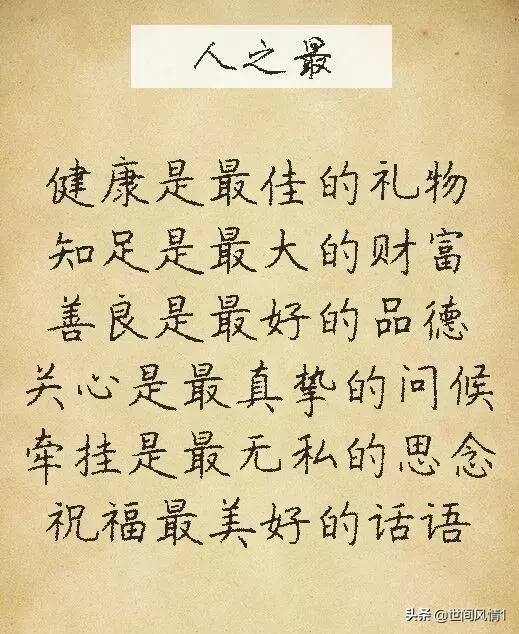 人之最
健康是最佳的礼物
知足是最大的财富
善良是最好的品德
关心是最真挚的问候
牵挂是最无私的思念
祝福最美好的话语
头条 @世间风情1